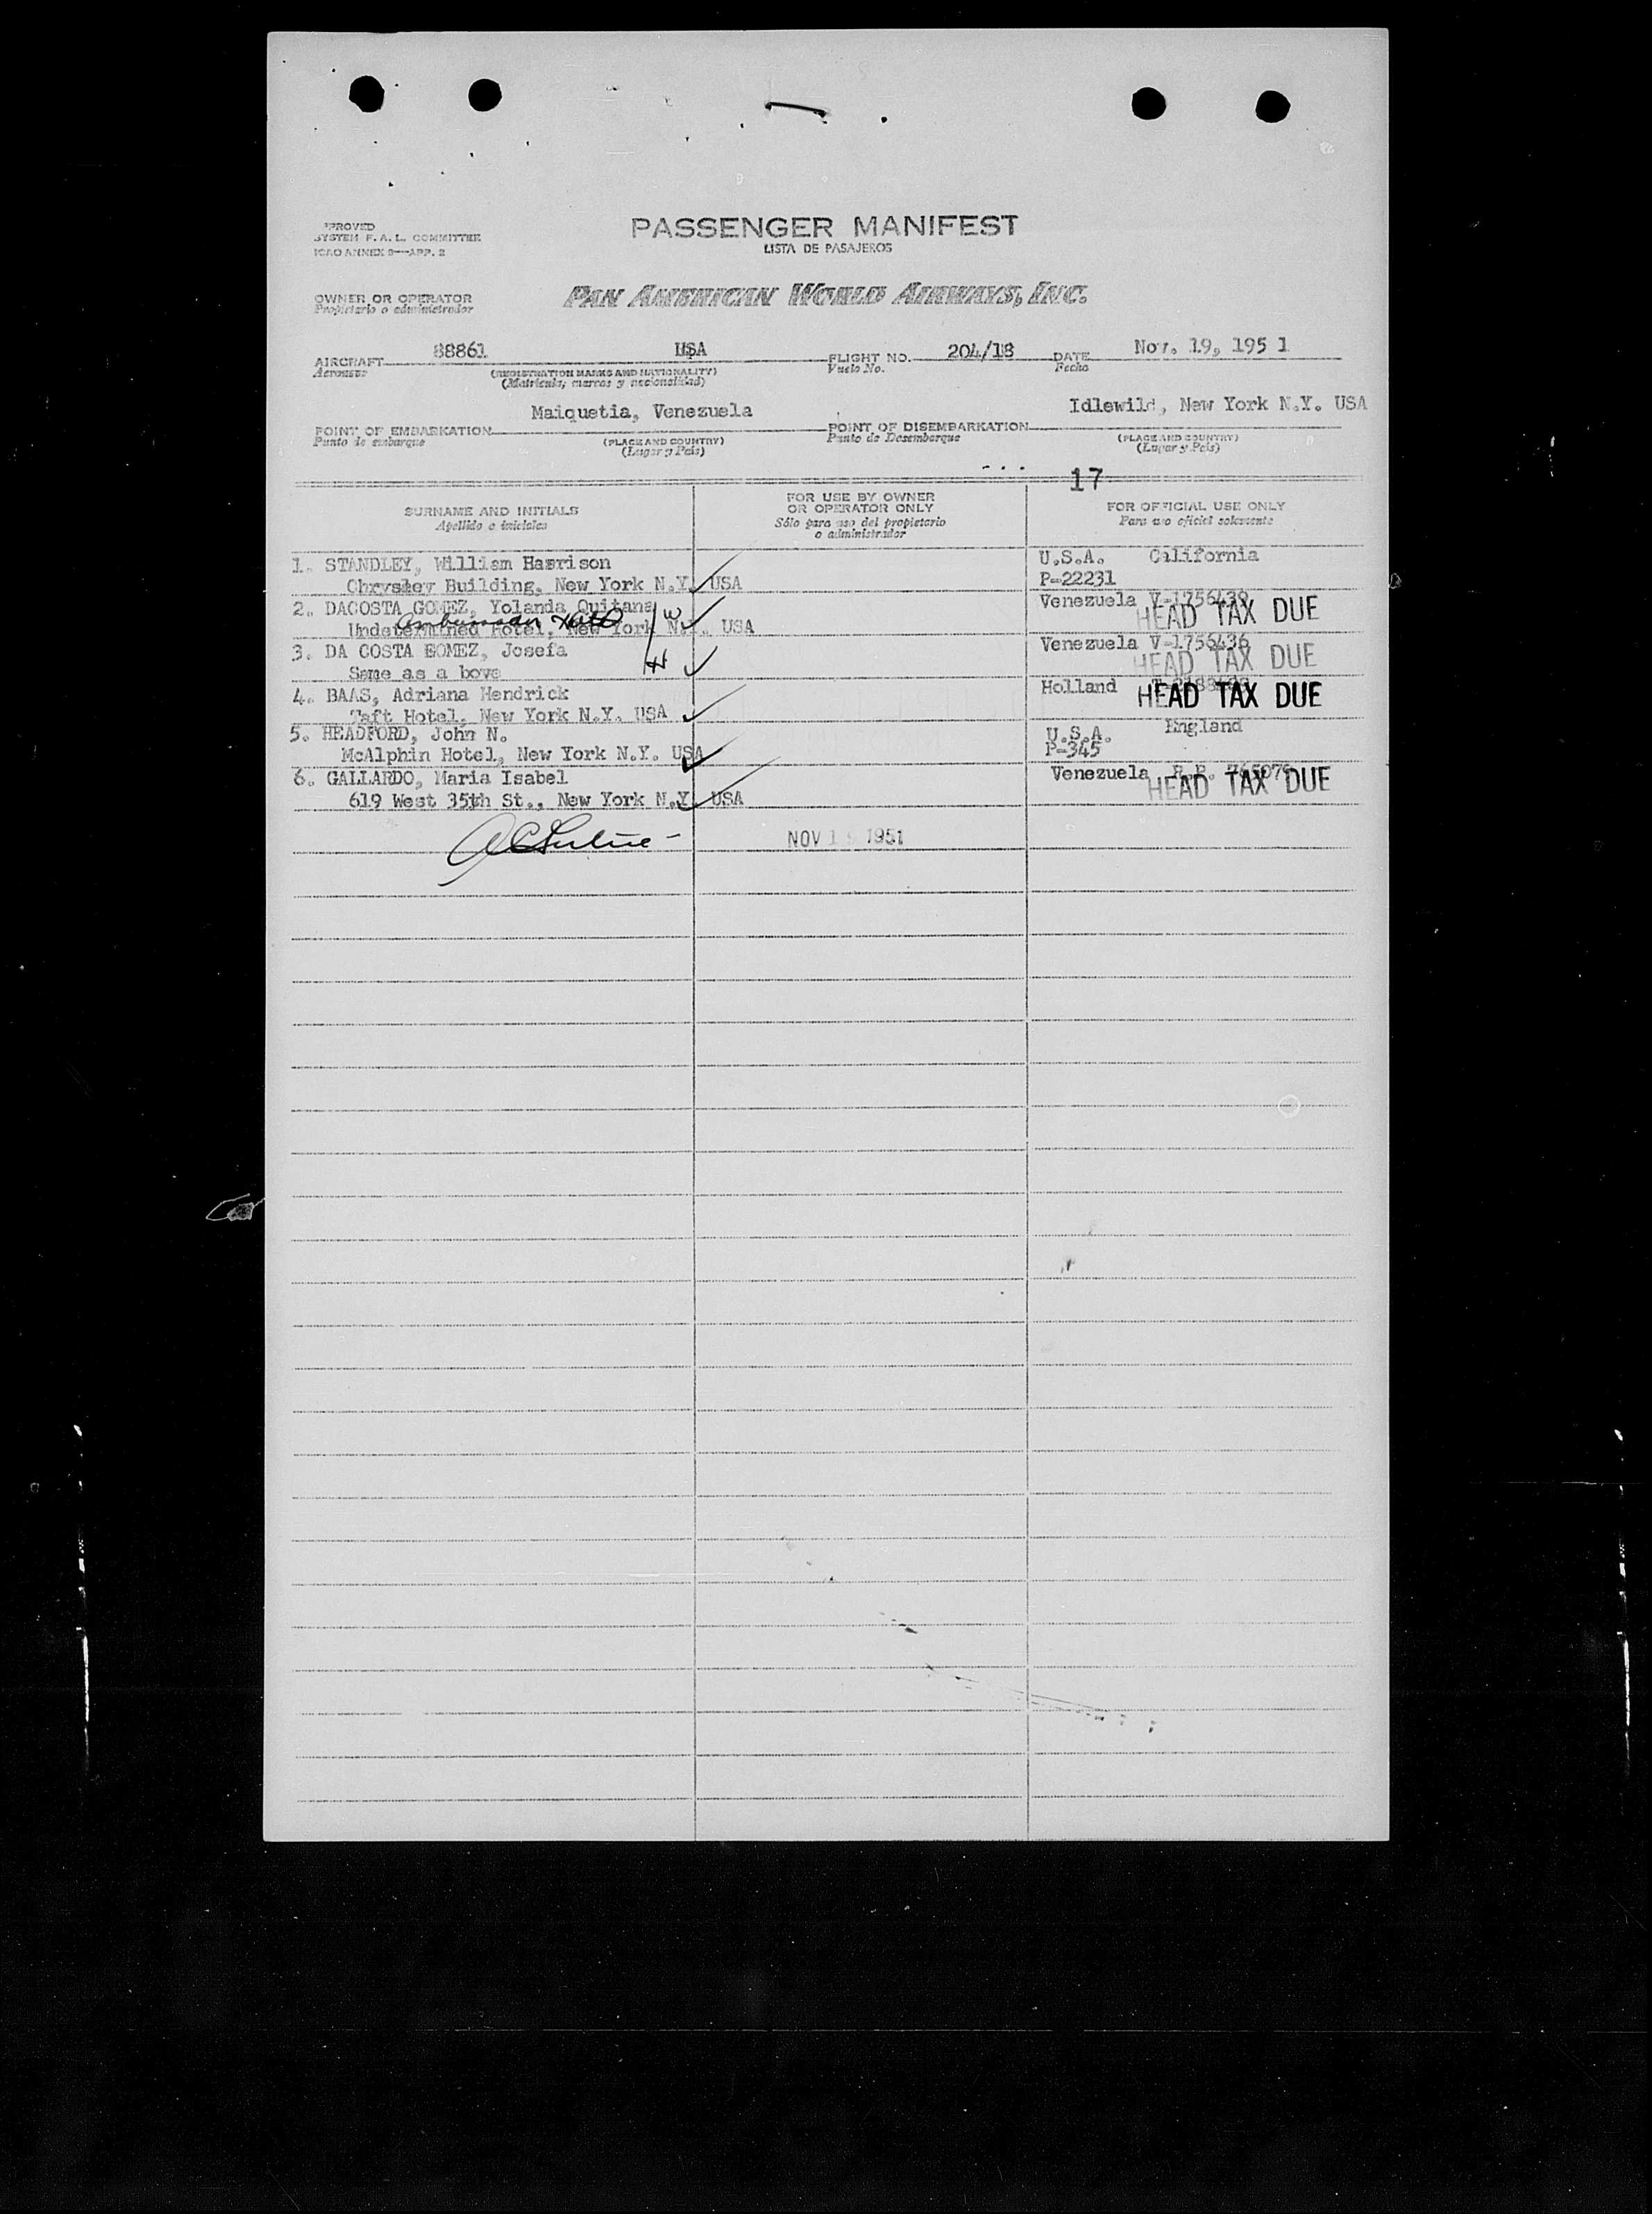 PASSENGER MANIFEST
LISTA DE PASAJEROS
APPROVED
SYSTEM F. A. L. COMMITTEE
ICAO ANNEX 9—APP. 2
OWNER OR OPERATOR
Propietario o administrador
PAN AMERICAN WORLD AIRWAYS, INC.
AIRCRAFT 88861 USA FLIGHT NO. 204/18 DATE Nov. 19, 195 1
Aeronave (REGISTRATION MARKS AND NATIONALITY) Vuelo No. Fecha
(Matrícula, marcas y nacionalidad)
POINT OF EMBARKATION Maiquetia, Venezuela POINT OF DISEMBARKATION Idlewild, New York N.Y. USA
Punto de embarque (PLACE AND COUNTRY) Punto de Desembarque (PLACE AND COUNTRY)
(Lugar y País) (Lugar y País)
17
SURNAME AND INITIALS
Apellido e iniciales
FOR USE BY OWNER
OR OPERATOR ONLY
Sólo para uso del propietario
o administrador
FOR OFFICIAL USE ONLY
Para uso oficial solamente
1. STANDLEY, William Harrison U.S.A. California
Chrysley Building, New York N.Y. USA P-22231
2. DACOSTA GOMEZ, Yolanda Quitana W Venezuela V-1756439
HEAD TAX DUE
Undetermined Hotel, New York N.Y. USA
3. DA COSTA GOMEZ, Josefa Venezuela V-1756436
Same as a bove H HEAD TAX DUE
4. BAAS, Adriana Hendrick Holland HEAD TAX DUE
Taft Hotel, New York N.Y. USA
5. HEADFORD, John N. U.S.A. England
McAlphin Hotel, New York N.Y. USA P-345
6. GALLARDO, Maria Isabel Venezuela
HEAD TAX DUE
619 West 35th St., New York N.Y. USA
NOV 1 1951